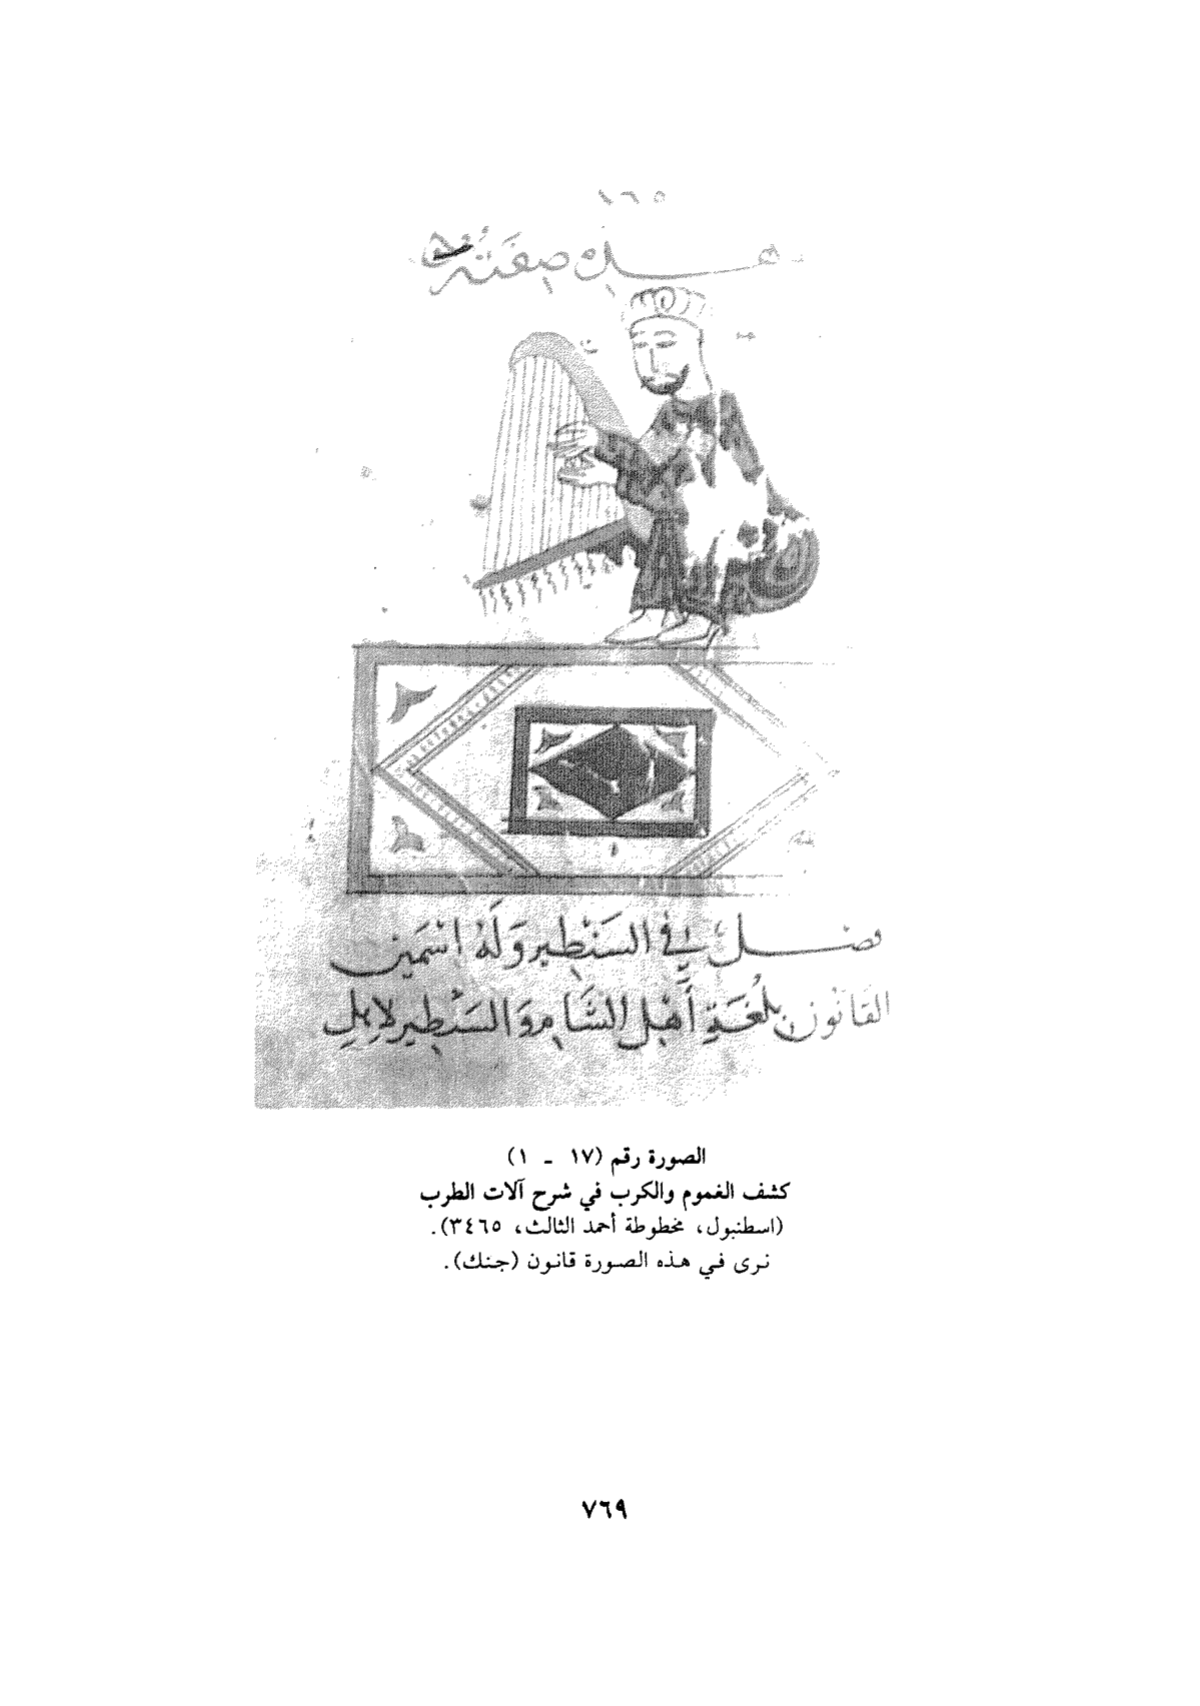 ١٦٥
هذه صفته
فصل في السَنْطير وَلَهُ اسْمَين
القَانُون بلُغَةِ أَهْل الشَّام وَالسَنْطير لاهل
الصورة رقم (١٧ - ١)
كشف الغموم والكرب في شرح آلات الطرب
(اسطنبول، مخطوطة أحمد الثالث، ٣٤٦٥).
نرى في هذه الصورة قانون (جنك).
٧٦٩